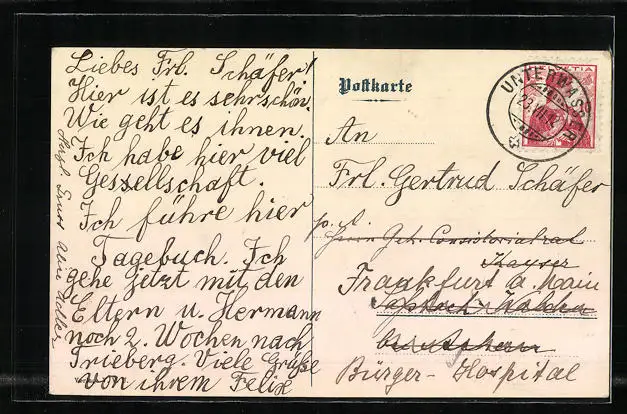 Liebes Frl. Schäfer!
Hier ist es sehr schön.
Wie geht es ihnen.
Ich habe hier viel
Gessellschaft.
Ich führe hier
Tagebuch. Ich
gehe jetzt mit den
Eltern u. Hermann
noch 2. Wochen nach
Trieberg. Viele Grüße
von ihrem Felix
Postkarte
HELVETIA
UNTERWASSER
An
Frl. Gertrud Schäfer
p. A.
Herrn Geh. Consistorialrat
Kayser
Frankfurt a. Main
Bürger-Hospital